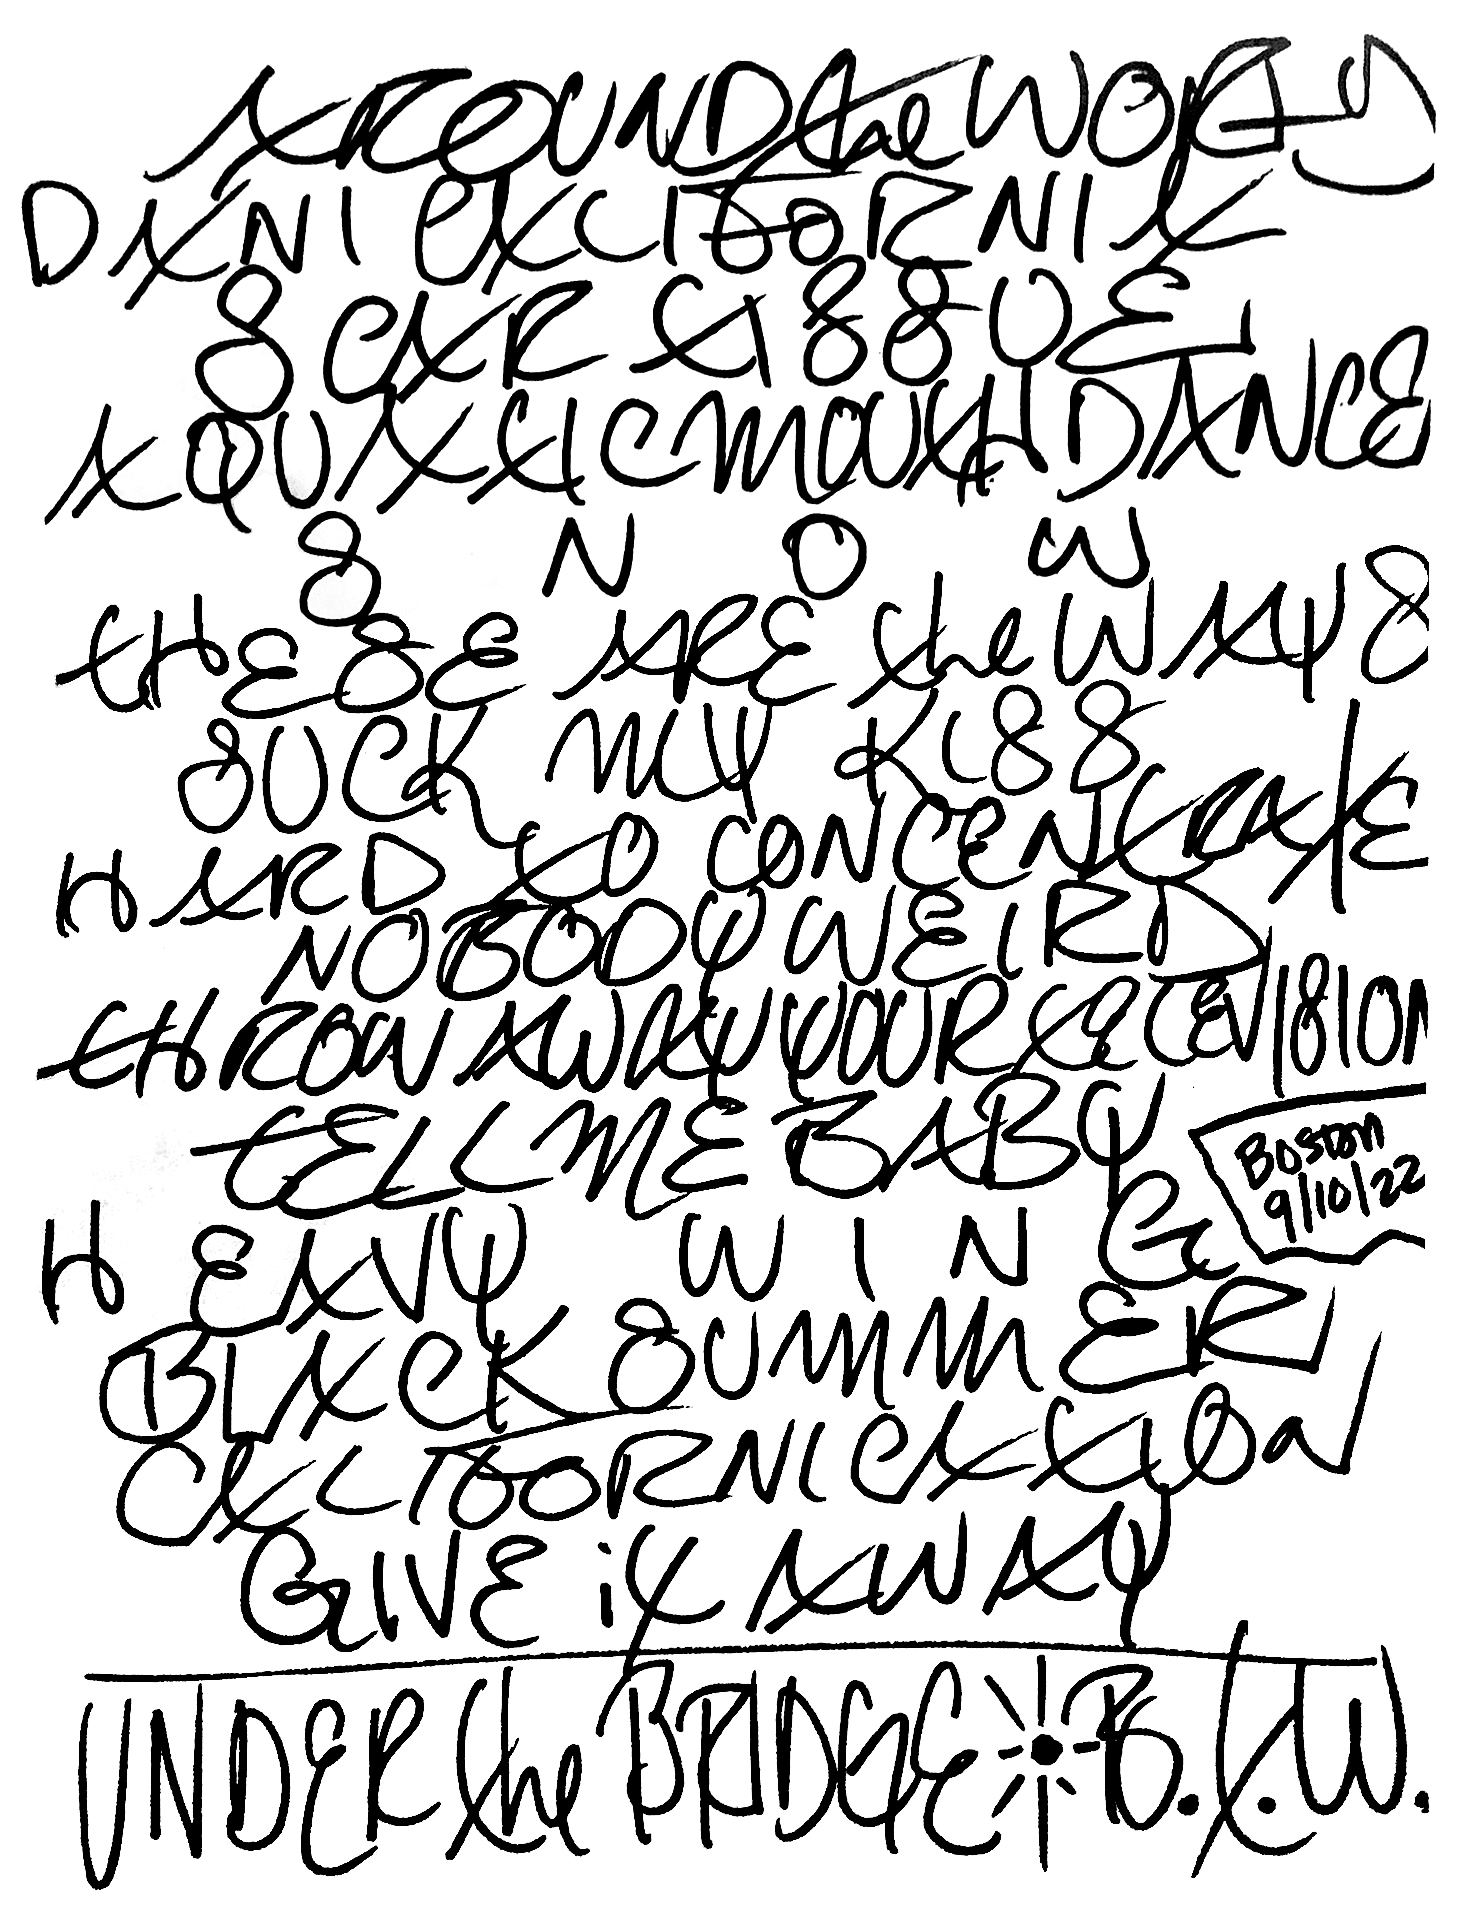 AROUND the WORLD
DANI CALIFORNIA
SCAR TISSUE
AQUATIC MOUTH DANCE
SNOW
THESE ARE the WAYS
SUCK MY KISS
HARD TO CONCENTRATE
NOBODY WEIRD
THROW AWAY YOUR TELEVISION
TELL ME BABY
Boston
9/10/22
HEAVY WING
BLACK SUMMER
CALIFORNICATION
GIVE iT AWAY
UNDER the BRIDGE B.T.W.